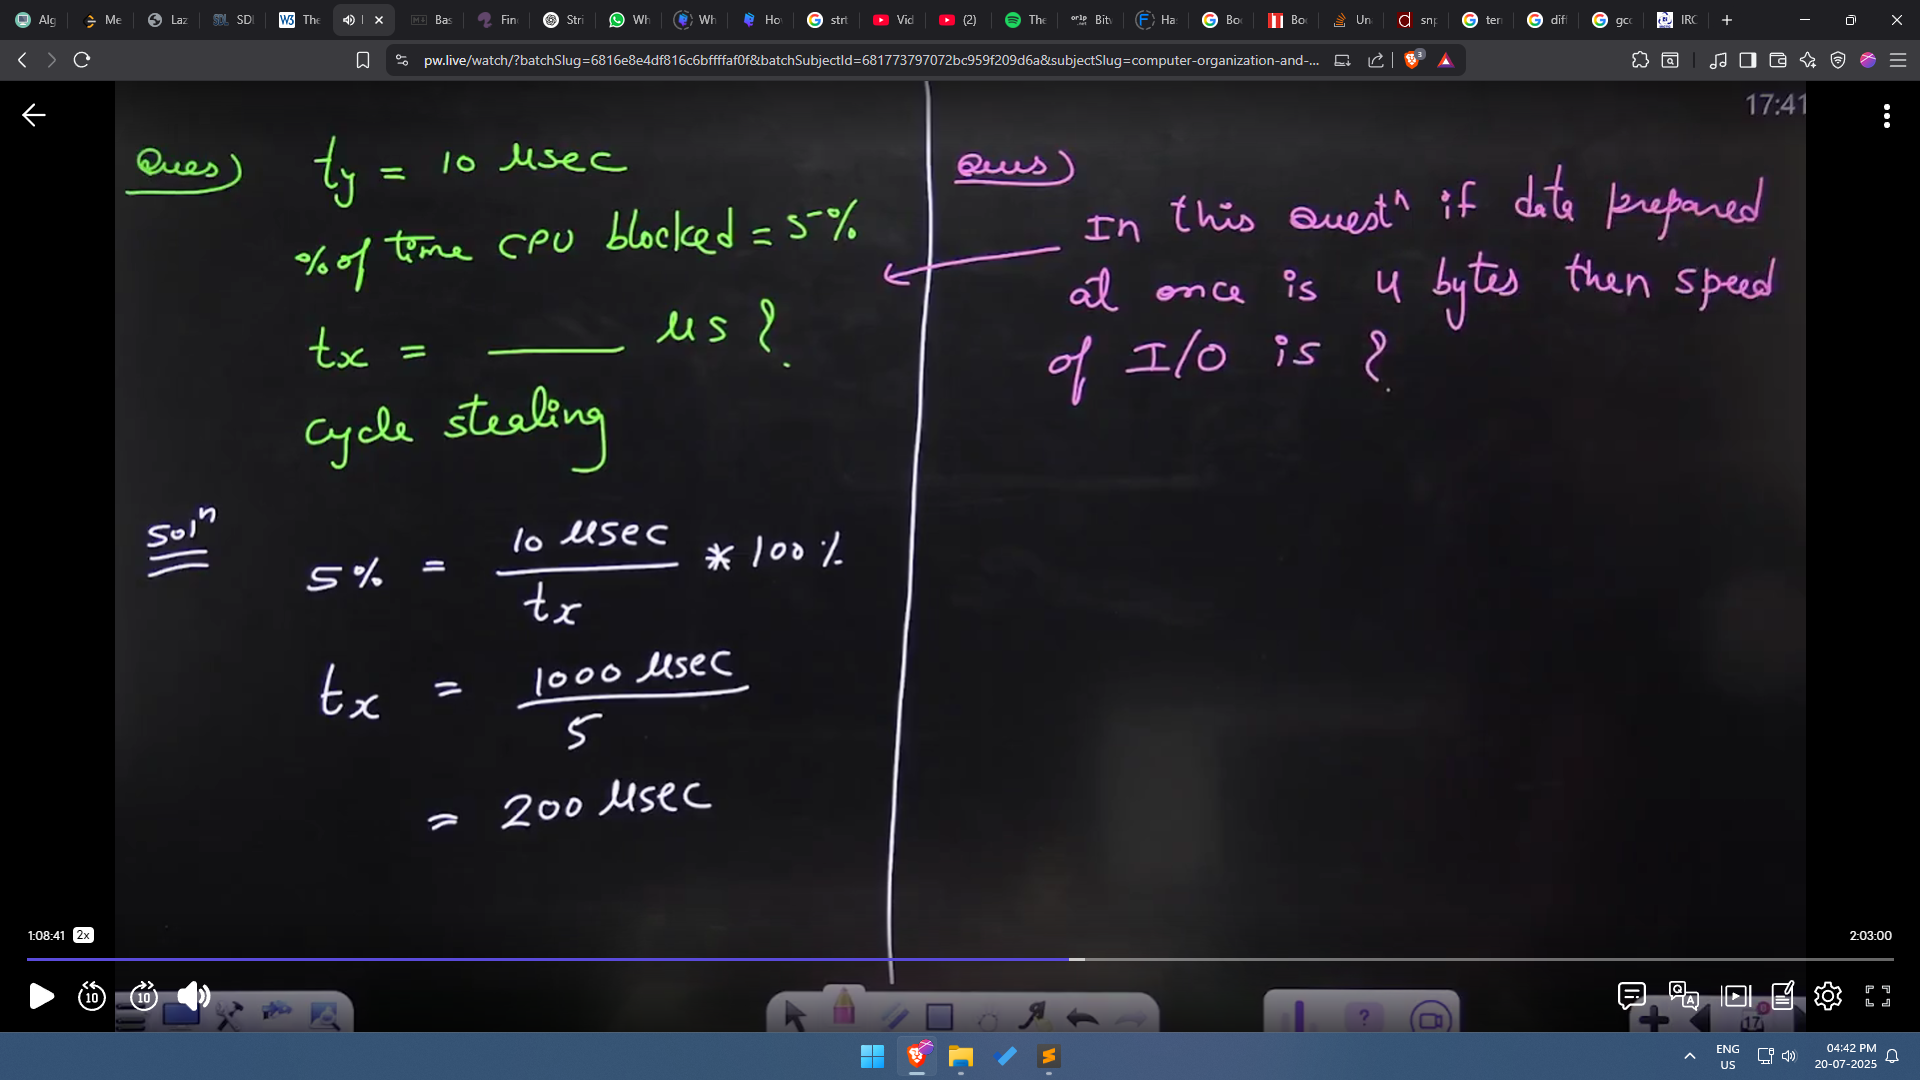 Alg
Me
Laz
SDI
The
Bas
Fine
Stri
Wh
Wh
Hov
strt
Vid
(2)
The
Bitv
Has
Boo
Boo
Un
snp
terr
diff
gcc
IRC
pw.live/watch/?batchSlug=6816e8e4df816c6bffffaf0f&batchSubjectId=681773797072bc959f209d6a&subjectSlug=computer-organization-and-...
3
17:41
Ques) ty = 10 μsec
% of time CPU blocked = 5%
tx = ______ μs ?
cycle stealing
Soln
5% = 10 μsec / tx * 100%
tx = 1000 μsec / 5
= 200 μsec
Ques)
In this questn if data prepared
at once is 4 bytes then speed
of I/O is ?
1:08:41 2x
2:03:00
10
10
17
ENG
US
04:42 PM
20-07-2025